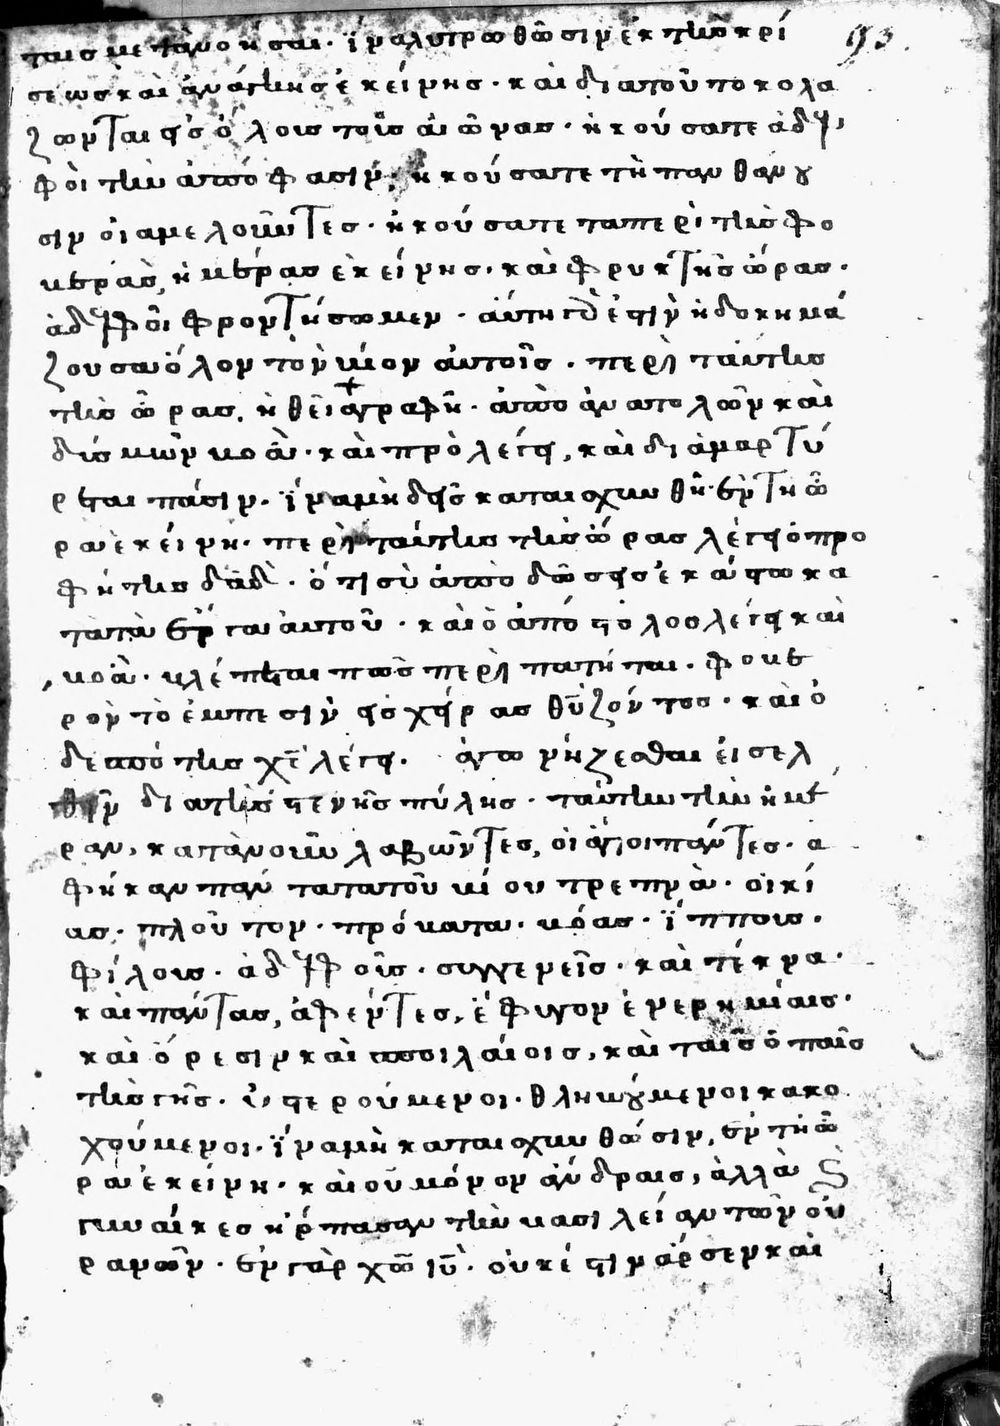 ταισ μετανοῆσαι· ἵνα λυτρωθῶσιν ἐκ τῆσ κρί 93.
σεωσ καὶ ἀνάγκησ ἐκείνησ· καὶ διατοῦτο κολά
ζωνται εἰσ ὅλουσ τοῦσ αἰῶνασ· ἠκούσατε ἀδελ
φοὶ τὴν ἀπόφασιν· ἠκούσατε τὴ πανθάνου
σιν οἱ αμελοῦντεσ· ἠκούσατε τα περὶ τῆσ φο
βερᾶσ, ἡμέρασ ἐκείνησ· καὶ φρυκτῆσ ὥρασ·
ἀδελφοὶ φροντήσωμεν· αὕτη γὰρ ἐστὶν ἡ δοκημά
ζουσα ὅλον τὸν βίον αὐτοῖσ· περὶ ταύτησ
τῆσ ὥρασ, ἡ θεῖα γραφῆ· ἀπὸ ἀνατολῶν καὶ
δύσμων βοᾶ· καὶ προλέγει, καὶ διαμαρτύ
ρεται πάσιν· ἵνα μὴδεὶσ καταισχυνθῆ· ἐν τῆ ὥ
ρα ἐκείνη· περὶ ταύτησ τῆσ ὥρασ λέγει ὁ προ
φήτησ δαδ· ὅτι σὺ ἀποδώσεισ ἑκάστω κα
τὰ τὰ ἔργα αὐτοῦ· καὶ ὁ ἀπόστολοσ λέγει καὶ
βοᾶ· βλέπεται πῶσ περὶ πατήται· φοβε
ρὸν τὸ ἐμπεσὶν εἰσ χεῖρασ θῦ ζόντοσ· καὶ ὁ
δεσπότησ χσ λέγει· ἀγωνήζεσθαι εἰσελ
θεῖν διατῆσ στενῆσ πύλησ· ταύτην τὴν ἡμέ
ραν, κατὰνουν λαβῶντεσ, οἱ ἅγιοι πάντεσ· α
φήκαν πάντα τατοῦ βίου τρεπνὰ· οἰκί
ασ· πλοῦτον· πρόβατα· βόασ· ἵππουσ·
φίλουσ· ἀδελφοῦσ· συγγενεῖσ· καὶ τέκνα·
καὶ πάντασ, ἀφέντεσ, ἔφυγον ἐν ερημίαισ·
καὶ ὄρεσιν καὶ σπιλαίοισ, καὶ ταῖσ ὀπαῖσ
τῆσ γῆσ· ὑστερούμενοι· θληβόμενοι κακο
χούμενοι· ἵνα μὴ καταισχυνθώσιν, ἐν τῆ ὥ
ρα ἐκείνη· καὶ οὐ μόνον ἄνδραισ, ἀλλὰ κ
γυναίκεσ ἥρπασαν τὴν βασιλείαν τῶν οὐ
ρανῶν· ἐν γὰρ χῶ ιῦ· οὐκ ἔστιν ἄρσεν καὶ